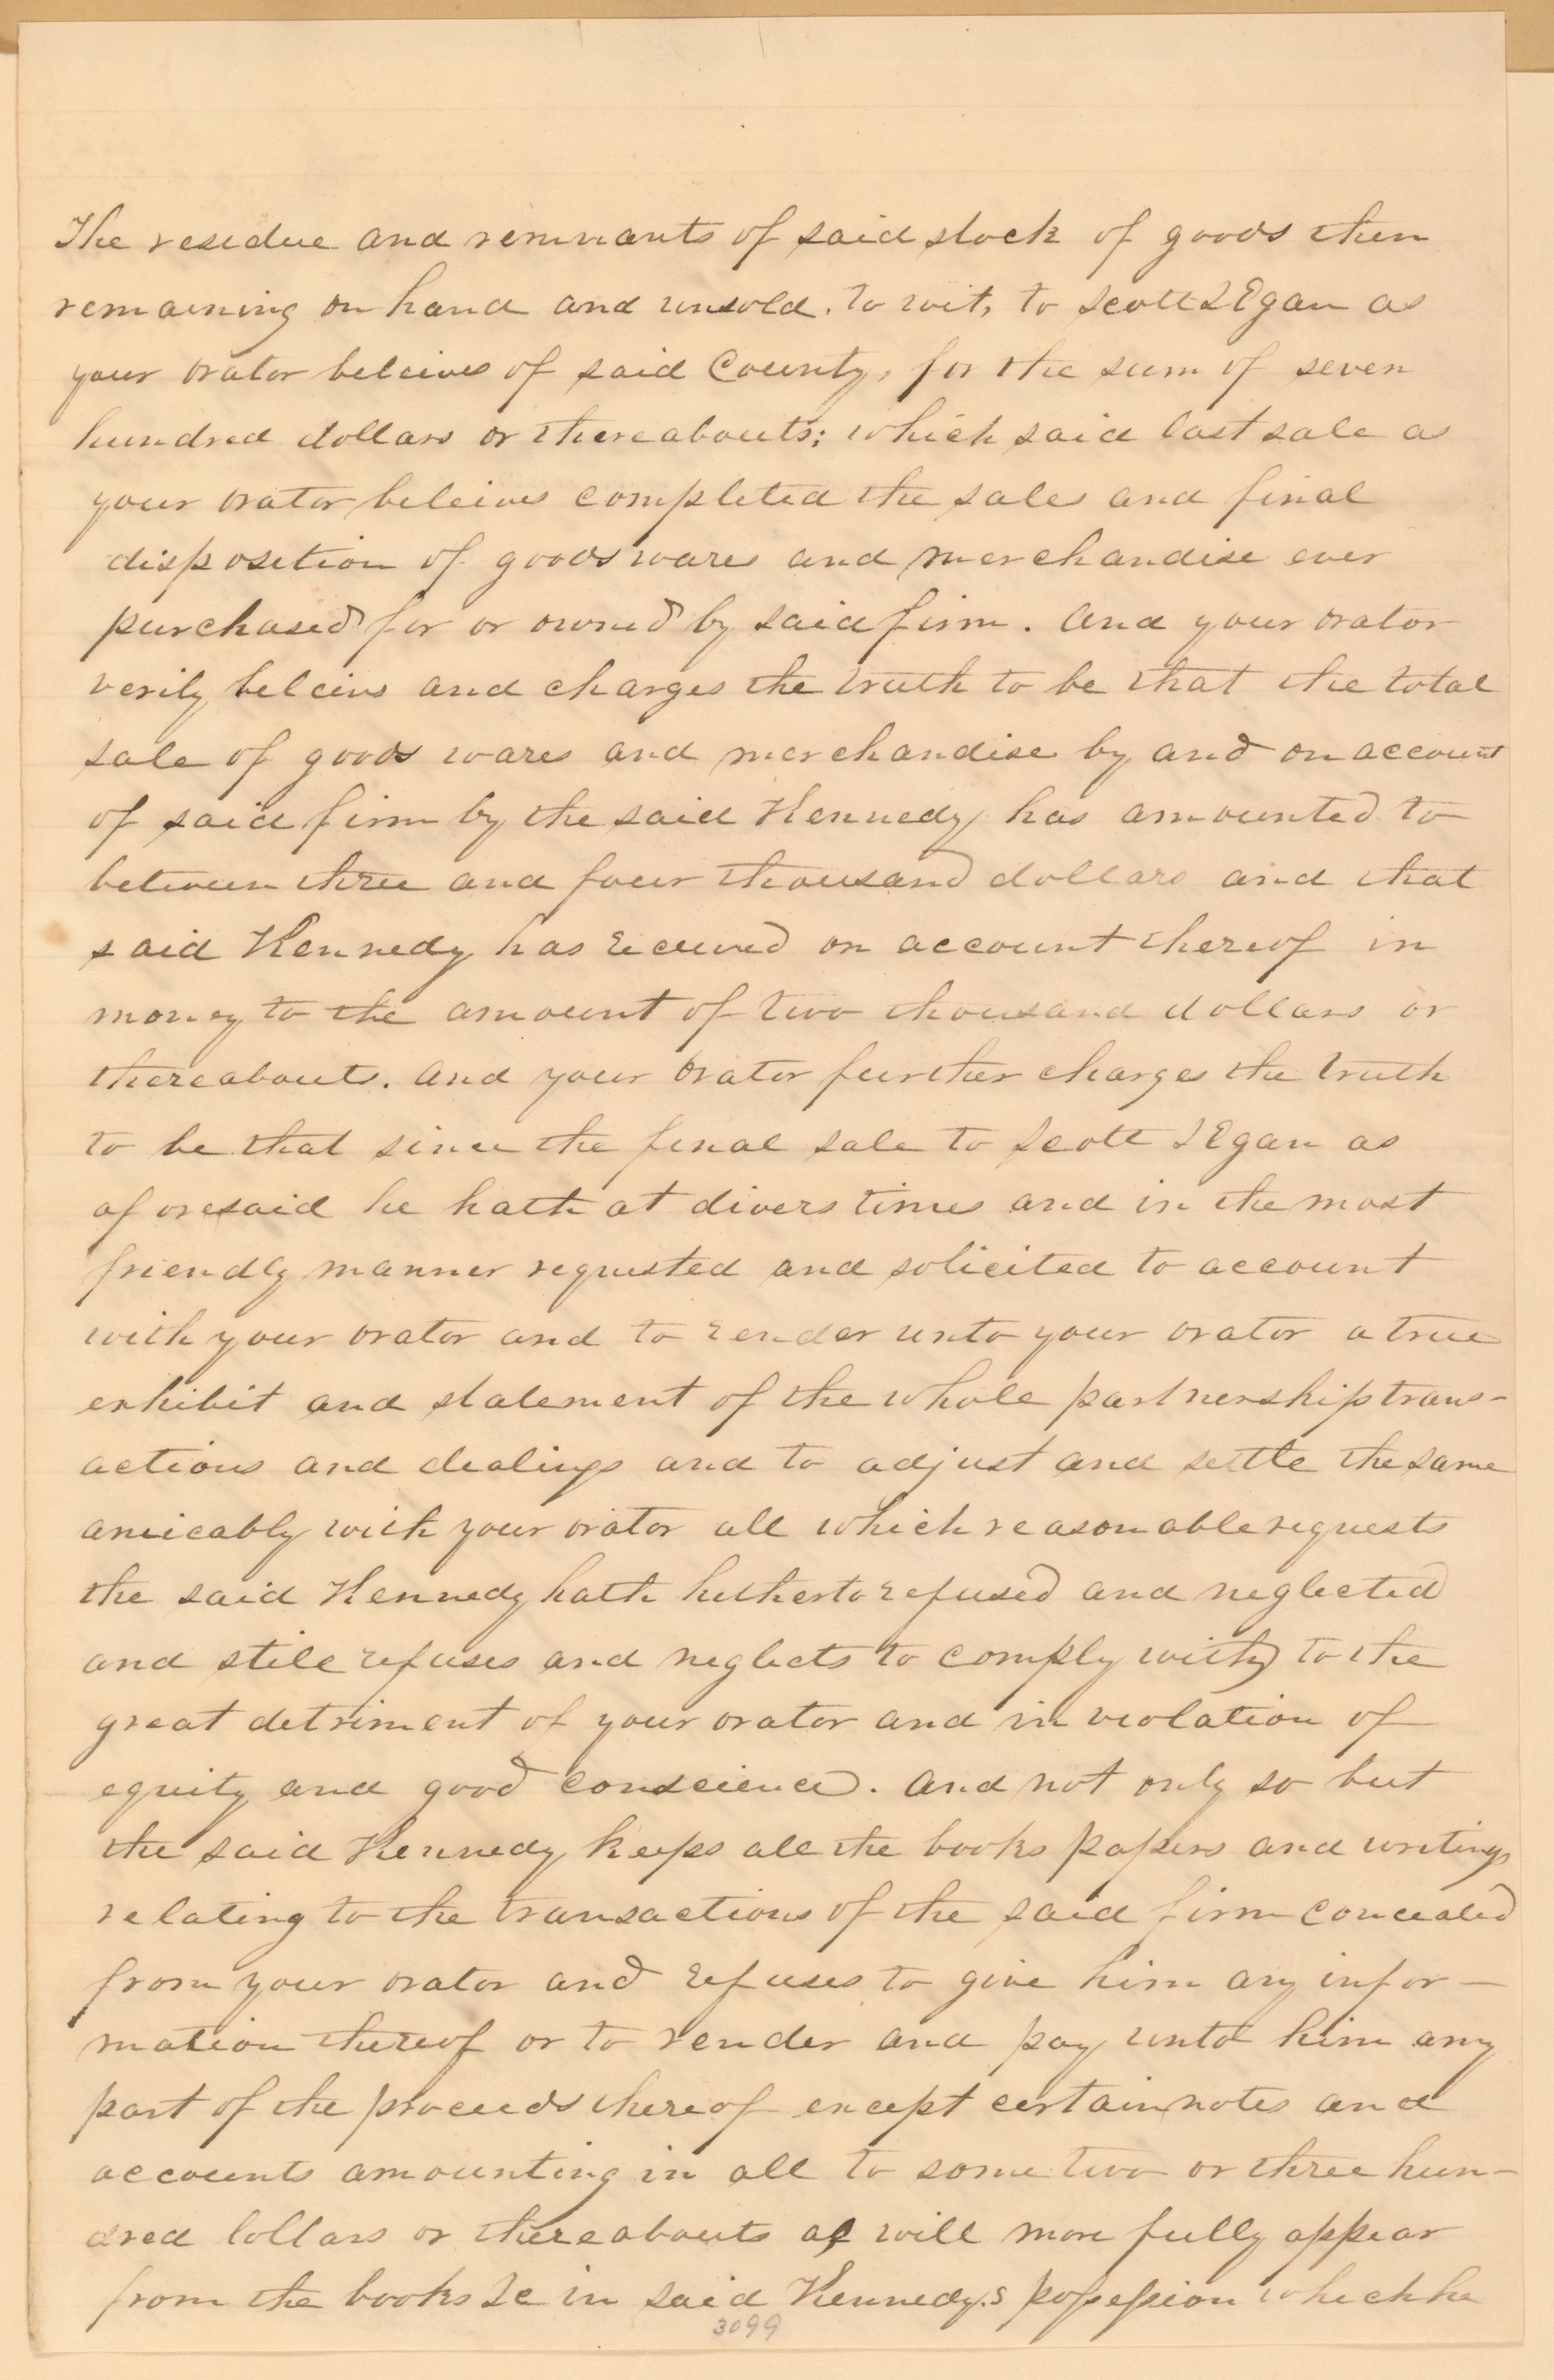 The residue and remnants of said stock of goods then
remaining on hand and unsold. to wit, to Scott & Egan as
your orator beleives of said County, for the sum of seven
hundred dollars or thereabouts; which said last sale as
your orator beleives completed the sales and final
disposition of goods wares and merchandise ever
purchased for or owned by said firm. And your orator
verily beleives and charges the truth to be that the total
sale of goods wares and merchandise by and on account
of said firm by the said Kennedy has amounted to
between three and four thousand dollars and that
said Kennedy has received on account thereof in
money to the amount of two thousand dollars or
thereabouts. And your Orator further charges the truth
to be that since the final sale to Scott & Egan as
aforesaid he hath at divers times and in the most
friendly manner requested and solicited to account
with your orator and to render unto your orator a true
exhibit and statement of the whole partnership trans-
actions and dealings and to adjust and settle the same
amicably with your orator all which reasonable requests
the said Kennedy hath hitherto refused and neglected
and still refuses and neglects to comply with to the
great detriment of your orator and in violation of
equity and good conscience. And not only so but
the said Kennedy keeps all the books papers and writings
relating to the transactions of the said firm concealed
from your orator and refuses to give him any infor-
mation thereof or to render and pay unto him any
part of the proceeds thereof except certain notes and
accounts amounting in all to some two or three hun-
dred dollars or thereabouts as will more fully appear
from the books &c in said Kennedy's possession which he
3099